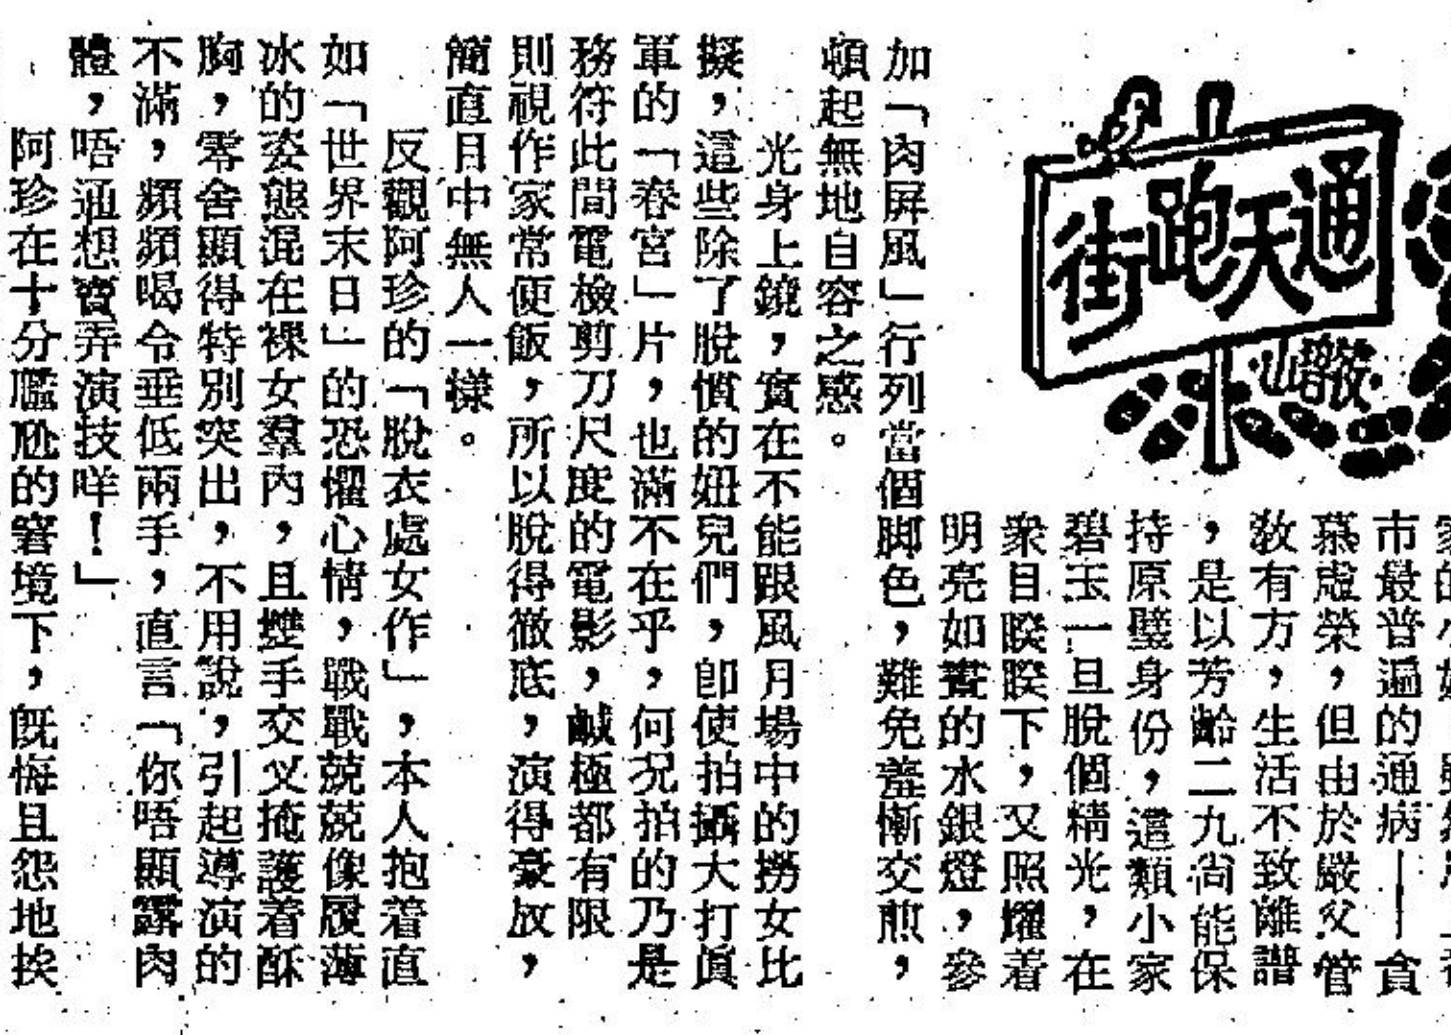 通天跑街
市最普遍的通病——貪
慕虛榮，但由於嚴父管
敎有方，生活不致離譜
，是以芳齡二九尙能保
持原璧身份，這類小家
碧玉一旦脫個精光，在
衆目睽睽下，又照耀着
明亮如晝的水銀燈，參
加「肉屏風」行列當個脚色，難免羞慚交煎，
頓起無地自容之感。
光身上鏡，實在不能跟風月場中的撈女比
擬，這些除了脫慣的妞兒們，卽使拍攝大打眞
軍的「春宮」片，也滿不在乎，何况拍的乃是
務符此間電檢剪刀尺度的電影，鹹極都有限，
則視作家常便飯，所以脫得徹底，演得豪放，
簡直目中無人一樣。
反觀阿珍的「脫衣處女作」，本人抱着直
如「世界末日」的恐懼心情，戰戰兢兢像履薄
冰的姿態混在裸女羣內，且雙手交叉掩護着酥
胸，零舍顯得特別突出，不用說，引起導演的
不滿，頻頻喝令垂低兩手，直言「你唔顯露肉
體，唔通想賣弄演技咩！」
阿珍在十分尷尬的窘境下，旣悔且怨地挨